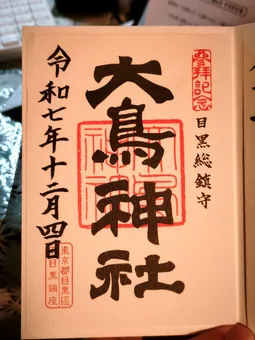 參拝記念
目黒総鎮守
大鳥神社
令和七年十二月四日
東京都目黒區
目黒鎮座